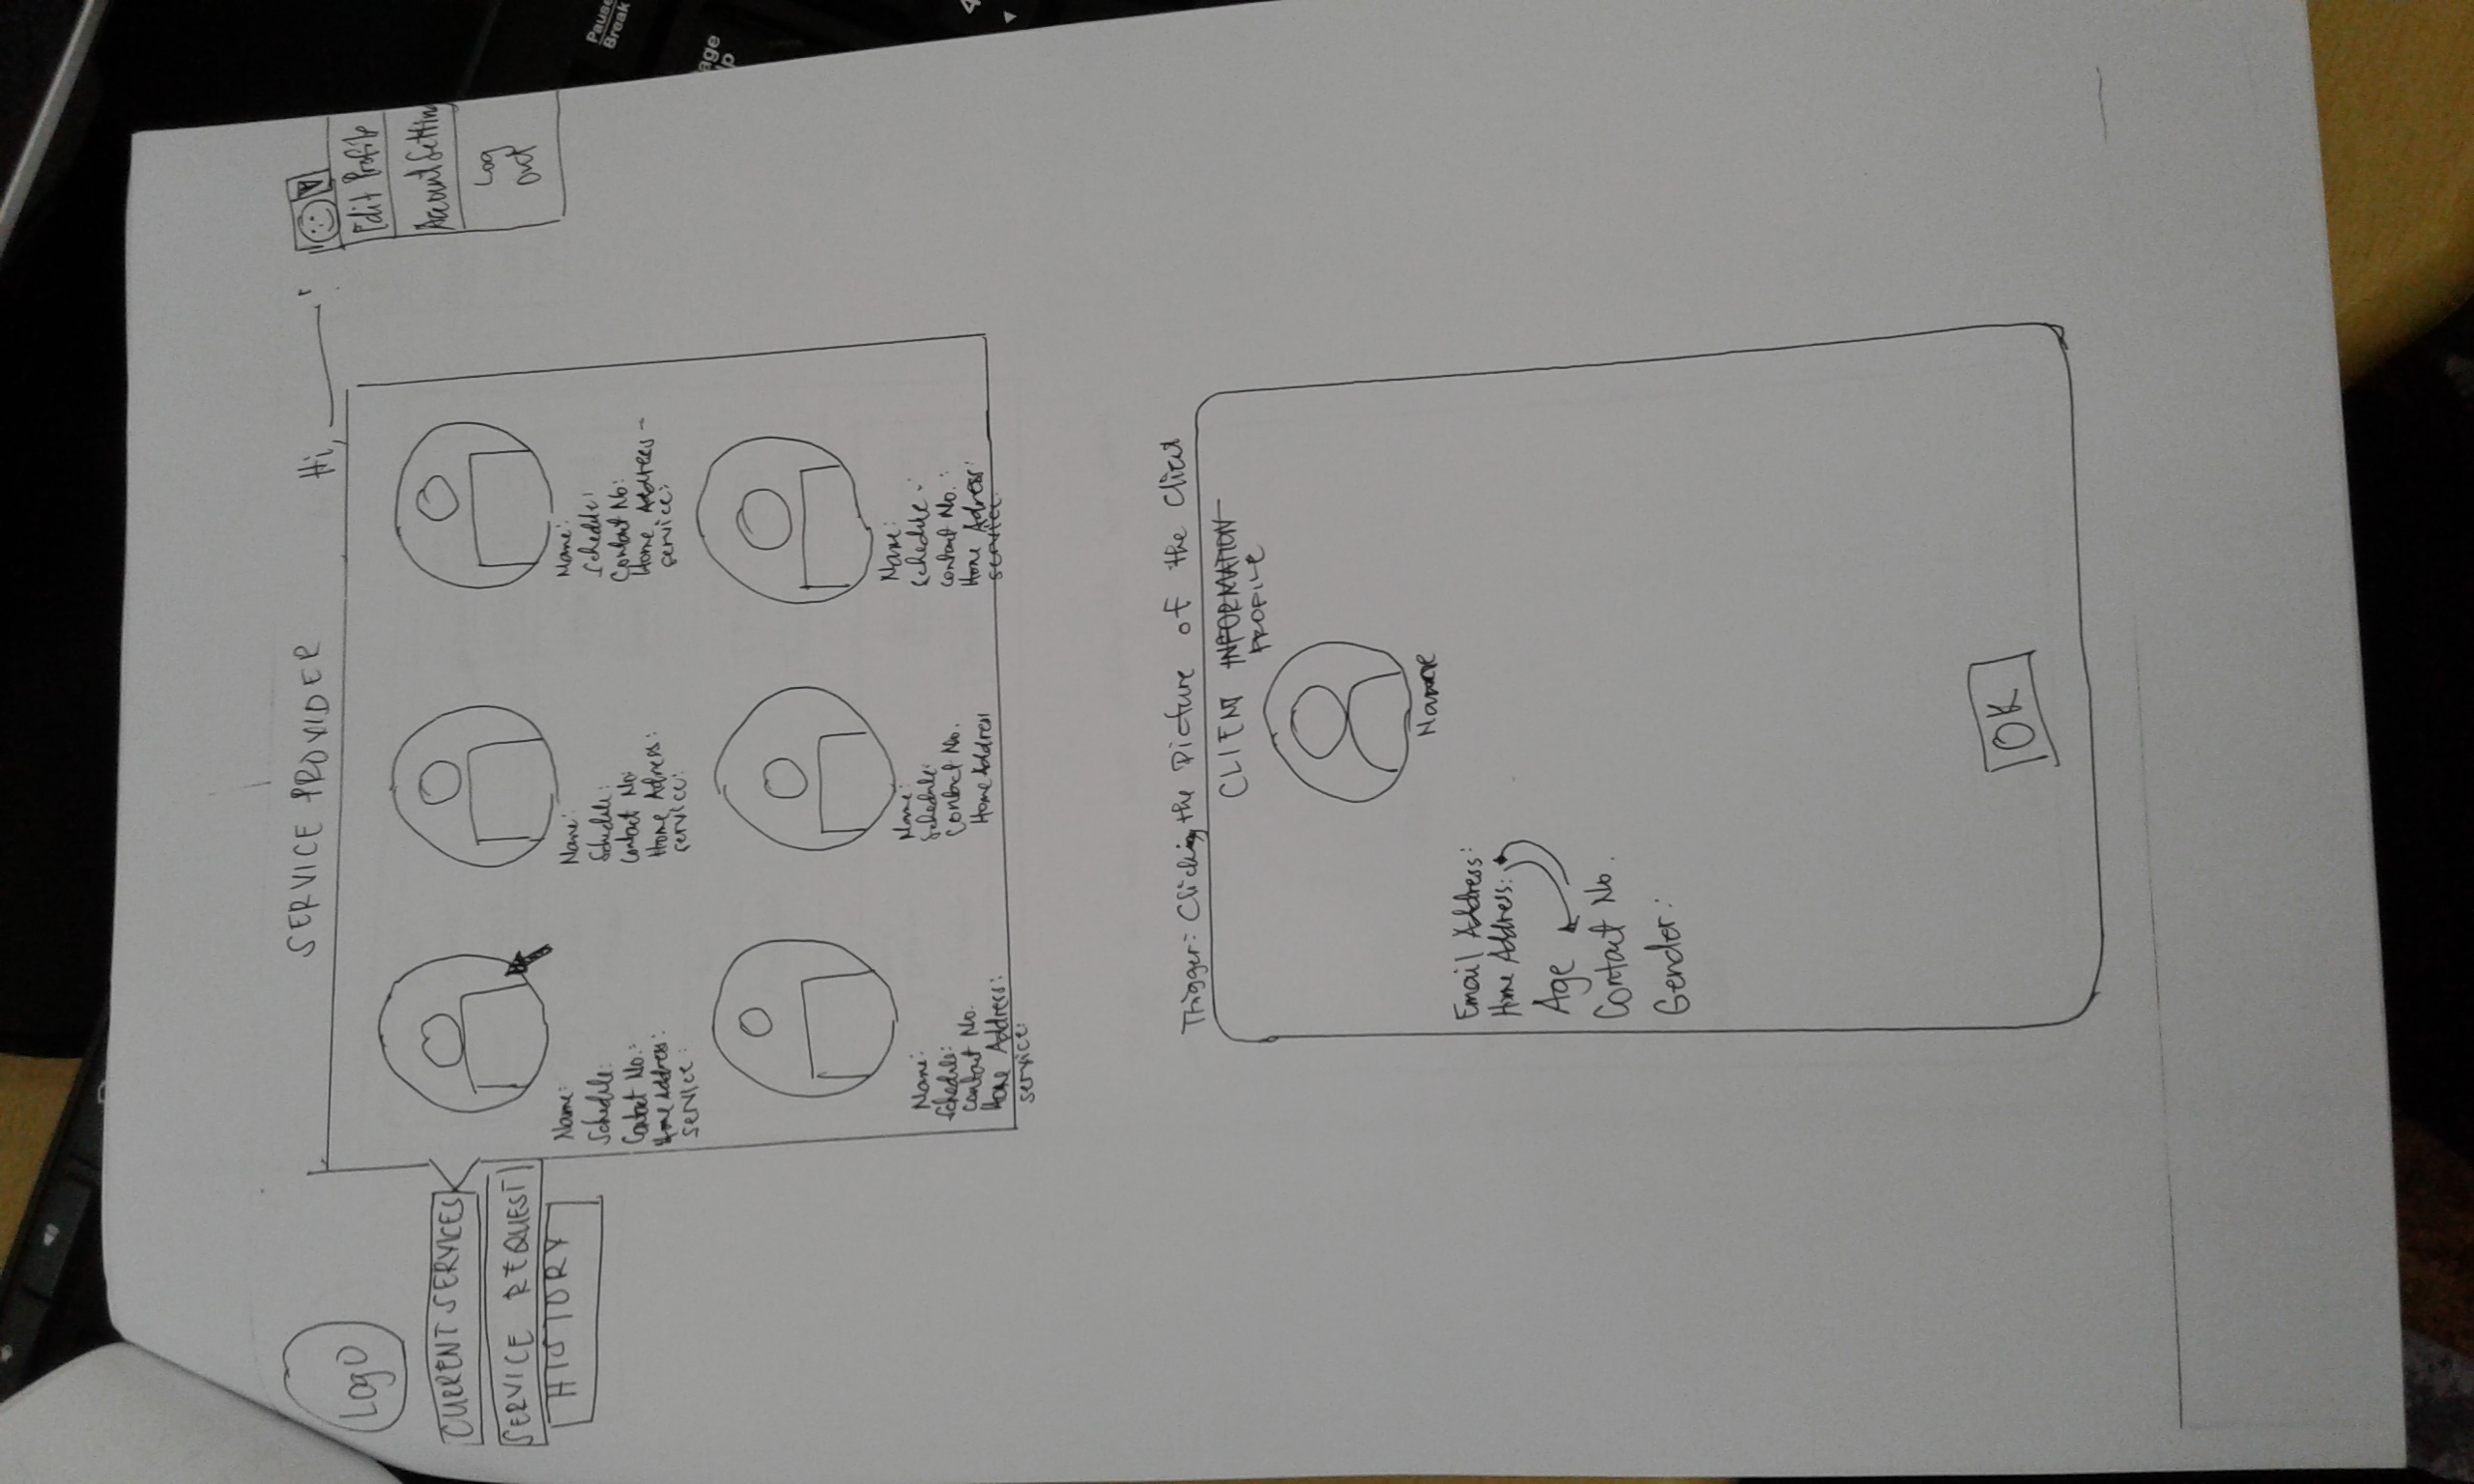 SERVICE PROVIDER
Hi,
Logo
Edit Profile
Account Settin
Log
Out
CURRENT SERVICES
SERVICE REQUEST
HISTORY
Name:
Schedule:
Contact No.:
Home Address:
service:
Name:
Schedule:
Contact No:
Home Adress:
service:
Name:
Schedule:
Contact No:
Home Address
service:
Name:
Schedule:
Contact No.
Home Address:
service:
Name:
Schedule:
Contact No.
Home Address
Name:
Schedule:
Contact No.:
Home Adress:
service:
Trigger: Clicking the Picture of the Client
CLIENT INFORMATION
PROFILE
Name
Email Address:
Home Address:
Age
Contact No.
Gender:
OK
Pause
Break
age
4